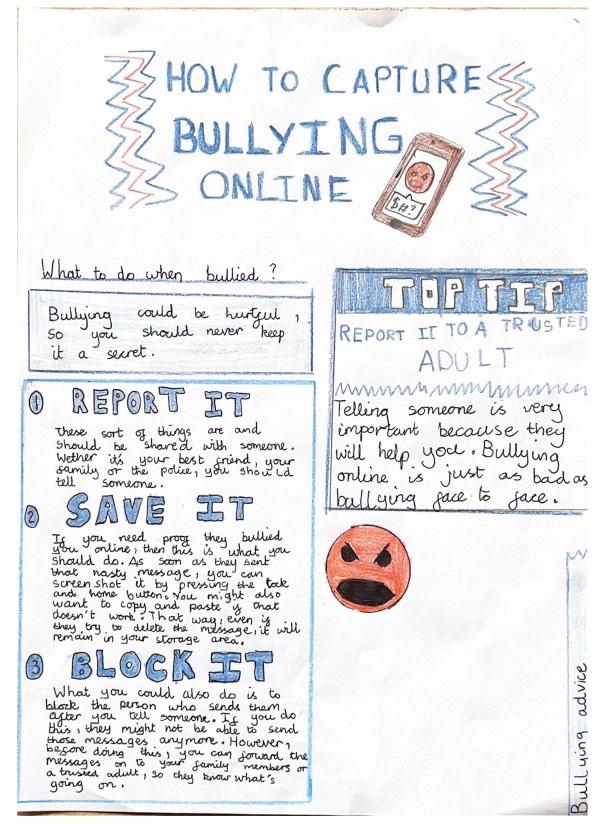 HOW TO CAPTURE
BULLYING
ONLINE
$#?
What to do when bullied ?
Bullying could be hurtful ,
so you should never keep
it a secret.
1 REPORT IT
These sort of things are and
should be shared with someone.
Wether it's your best friend, your
family or the police, you should
tell someone.
2 SAVE IT
If you need proof they bullied
you online, then this is what you
should do. As soon as they sent
that nasty message, you can
screenshot it by pressing the lock
and home button. You might also
want to copy and paste if that
doesn't work. That way, even if
they try to delete the message, it will
remain in your storage area.
3 BLOCK IT
What you could also do is to
block the person who sends them
after you tell someone. If you do
this, they might not be able to send
those messages anymore. However,
before doing this, you can forward the
messages on to your family members or
a trusted adult, so they know what's
going on.
TOP TIP
REPORT IT TO A TRUSTED
ADULT
Telling someone is very
important because they
will help you. Bullying
online is just as bad as
bullying face to face.
Bullying advice